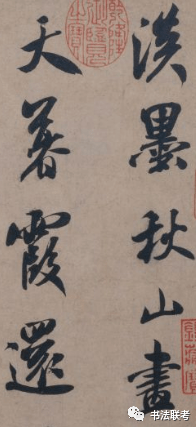 淡墨秋山畫
天暮霞還
书法联考